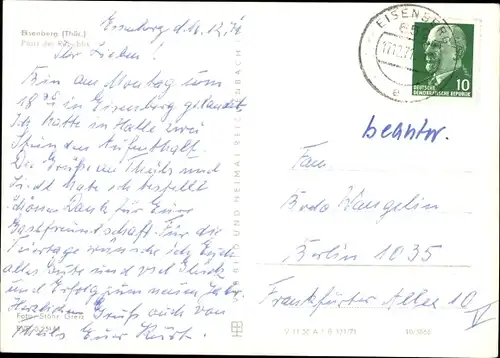 Eisenberg (Thür.)
Platz der Republik
Eisenberg d. 16.12.71
Ihr Lieben!
Bin am Montag um
18 in Eisenberg gelandet.
Ich hatte in Halle zwei
Stunden Aufenthalt.
Die Grüße an Theils und
habe ich bestellt
schönen Dank für Eure
Gastfreundschaft. Für die
Feiertage wünsche ich Euch
alles Gute und viel Glück
und Erfolg zum neuen Jahr.
Herzlichen Gruß auch von
Theils Euer Kurt.
Foto: Stöhr, Greiz
BILD UND HEIMAT REICHENBACH
EISENBERG
17.12.71
e
10
DEUTSCHE
DEMOKRATISCHE REPUBLIK
beantw.
Fam
Bodo Wangelin
Berlin 1035
Frankfurter Allee 10
IV